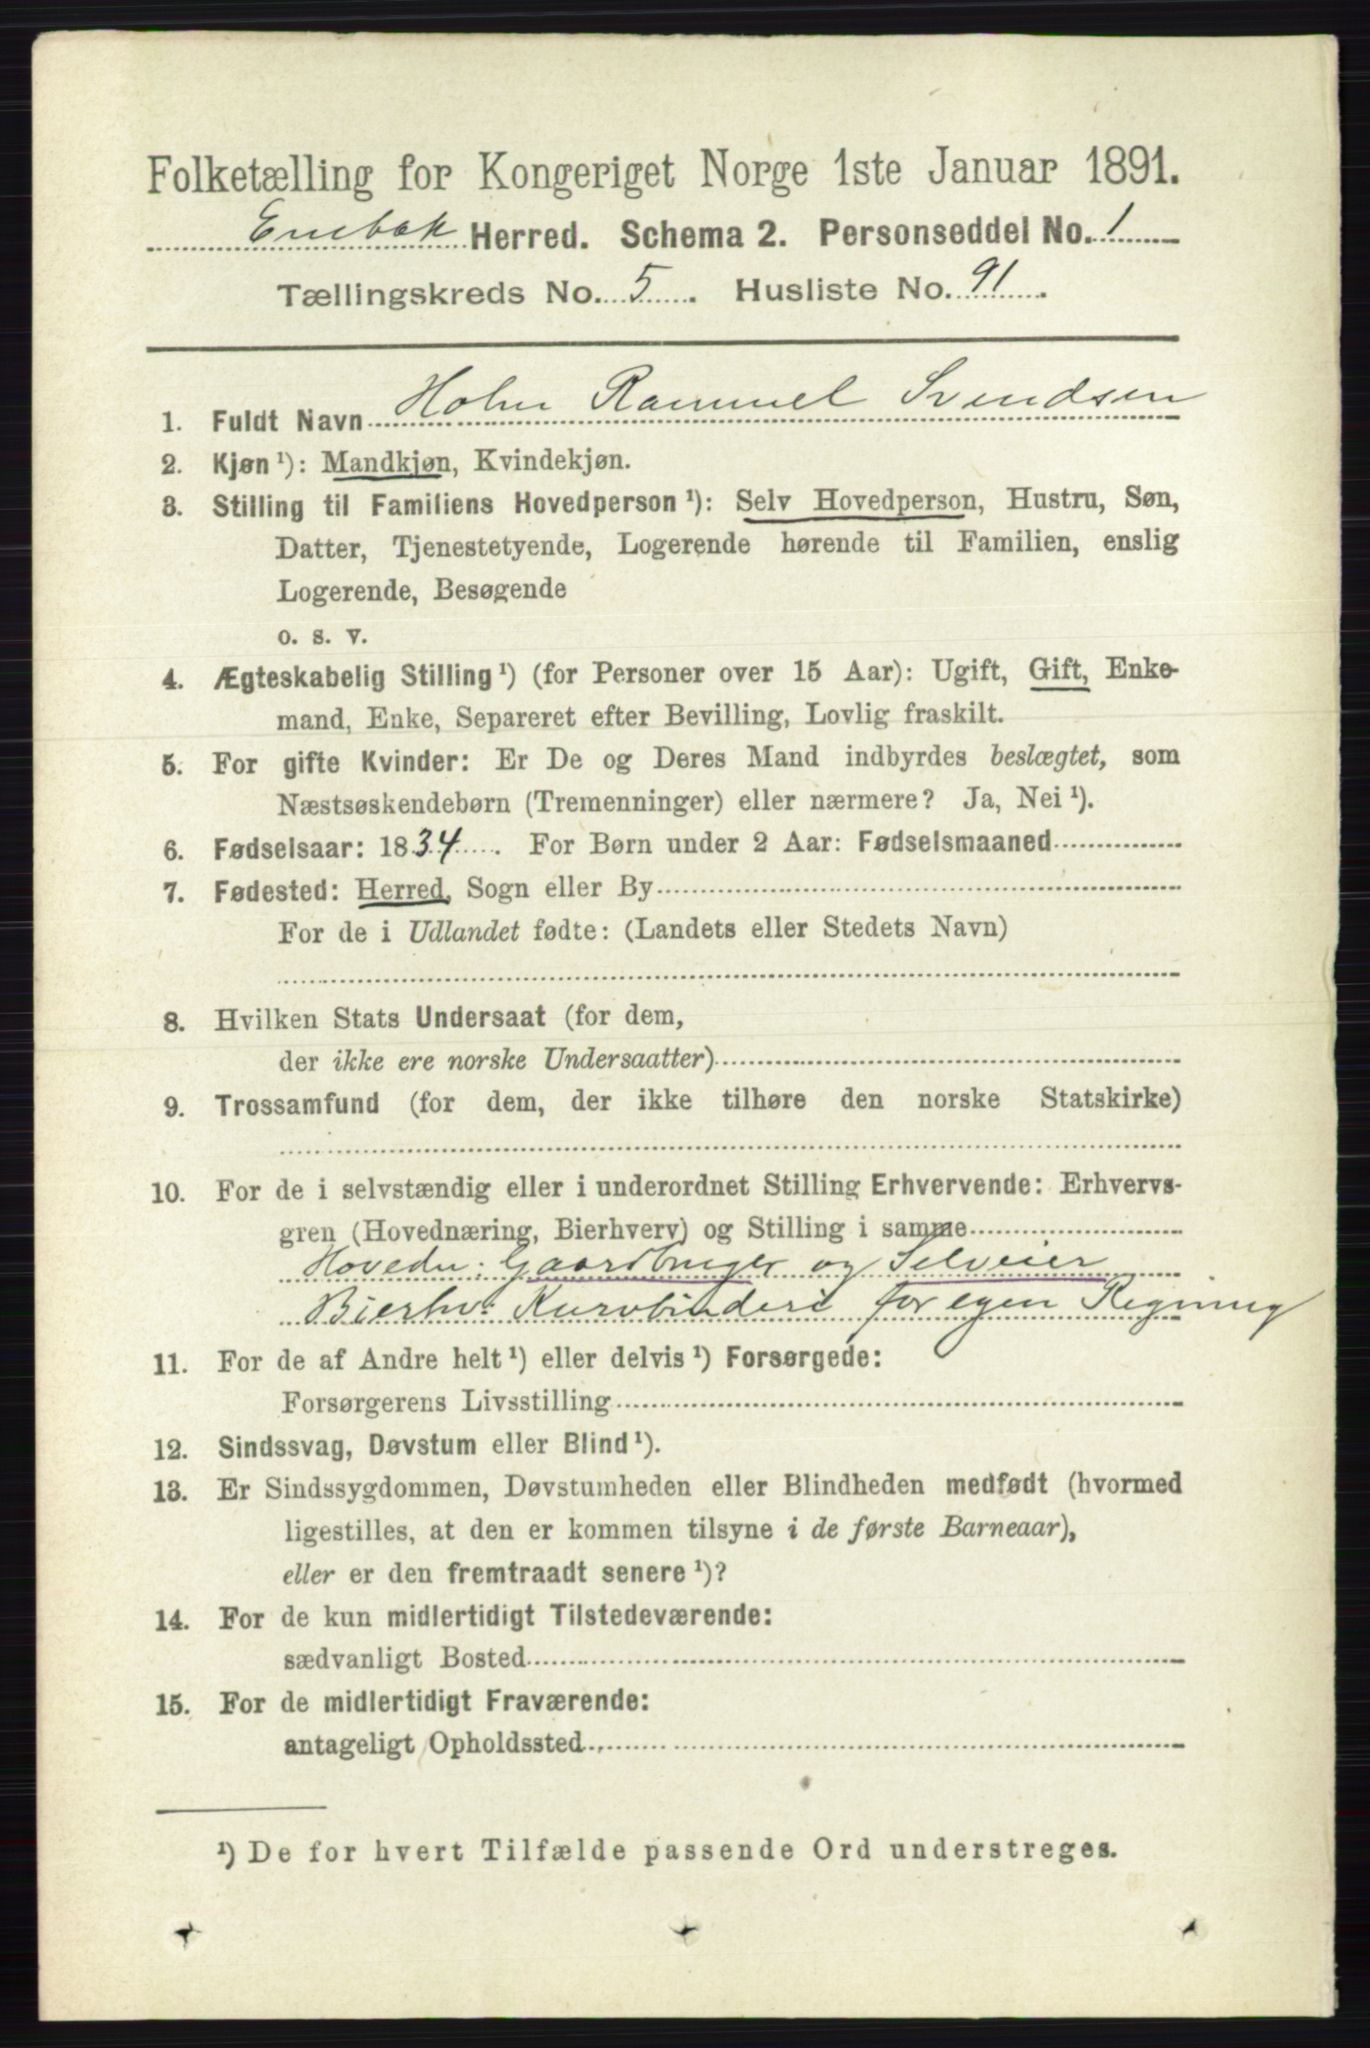 Folketælling for Kongeriget Norge 1ste Januar 1891.
Enebak Herred. Schema 2. Personseddel No. 1
Tællingskreds No. 5. Husliste No. 91.
1. Fuldt Navn Holm Rammel Svendsen
2. Kjøn ¹): Mandkjøn, Kvindekjøn.
3. Stilling til Familiens Hovedperson ¹): Selv Hovedperson, Hustru, Søn,
Datter, Tjenestetyende, Logerende hørende til Familien, enslig
Logerende, Besøgende
o. s. v.
4. Ægteskabelig Stilling ¹) (for Personer over 15 Aar): Ugift, Gift, Enke-
mand, Enke, Separeret efter Bevilling, Lovlig fraskilt.
5. For gifte Kvinder: Er De og Deres Mand indbyrdes beslægtet, som
Næstsøskendebørn (Tremenninger) eller nærmere? Ja, Nei ¹).
6. Fødselsaar: 1834. For Børn under 2 Aar: Fødselsmaaned
7. Fødested: Herred, Sogn eller By
For de i Udlandet fødte: (Landets eller Stedets Navn)
8. Hvilken Stats Undersaat (for dem,
der ikke ere norske Undersaatter)
9. Trossamfund (for dem, der ikke tilhøre den norske Statskirke)
10. For de i selvstændig eller i underordnet Stilling Erhvervende: Erhvervs-
gren (Hovednæring, Bierhverv) og Stilling i samme
Hovedn: Gaardbruger og Selveier
Bierhv: Kurvbinderi for egen Regning
11. For de af Andre helt ¹) eller delvis ¹) Forsørgede:
Forsørgerens Livsstilling
12. Sindssvag, Døvstum eller Blind ¹).
13. Er Sindssygdommen, Døvstumheden eller Blindheden medfødt (hvormed
ligestilles, at den er kommen tilsyne i de første Barneaar),
eller er den fremtraadt senere ¹)?
14. For de kun midlertidigt Tilstedeværende:
sædvanligt Bosted
15. For de midlertidigt Fraværende:
antageligt Opholdssted
¹) De for hvert Tilfælde passende Ord understreges.